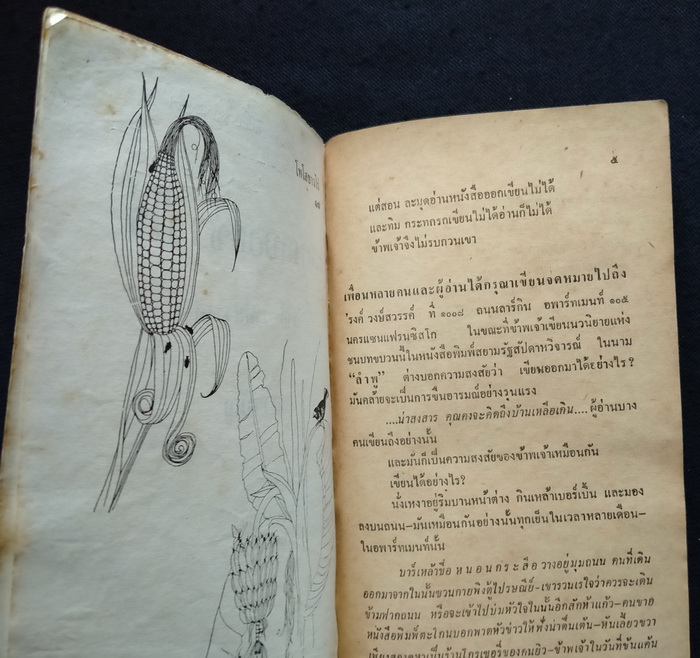 ๕
แต่สอน ละมุดอ่านหนังสือออกเขียนไม่ได้
และทิม กระทกรกเขียนไม่ได้อ่านก็ไม่ได้
ข้าพเจ้าจึงไม่รบกวนเขา
เพื่อนหลายคนและผู้อ่านได้กรุณาเขียนจดหมายไปถึง
'รงค์ วงษ์สวรรค์ ที่ ๑๐๐๘ ถนนลาร์กิน อพาร์ทเมนท์ ๑๐๕
นครแซนแฟรนซิสโก ในขณะที่ข้าพเจ้าเขียนนวนิยายแห่ง
ชนบทขบวนนี้ในหนังสือพิมพ์สยามรัฐสัปดาหวิจารณ์ ในนาม
“ลำพู” ต่างบอกความสงสัยว่า เขียนออกมาได้อย่างไร?
มันคล้ายจะเป็นการขืนอารมณ์อย่างรุนแรง
....น่าสงสาร คุณคงจะคิดถึงบ้านเหลือเกิน.... ผู้อ่านบาง
คนเขียนถึงอย่างนั้น
และมันก็เป็นความสงสัยของข้าพเจ้าเหมือนกัน
เขียนได้อย่างไร?
นั่งเหงาอยู่ริมบานหน้าต่าง กินเหล้าเบอร์เบิ้น และมอง
ลงบนถนน–มันเหมือนกันอย่างนั้นทุกเย็นในเวลาหลายเดือน–
ในอพาร์ทเมนท์นั้น
บาร์เหล้าชื่อ หนอนกระสือ วางอยู่มุมถนน คนที่เดิน
ออกมาจากในนั้นชวนกายพิงตู้ไปรษณีย์–เขารวนเรใจว่าควรจะเดิน
ข้ามฟากถนน หรือจะเข้าไปบ่มหัวใจในนั้นอีกสักห้าแก้ว–คนขาย
หนังสือพิมพ์ตะโกนบอกพาดหัวข่าวให้ฟังน่าตื่นเต้น–หันเลี้ยวขวา